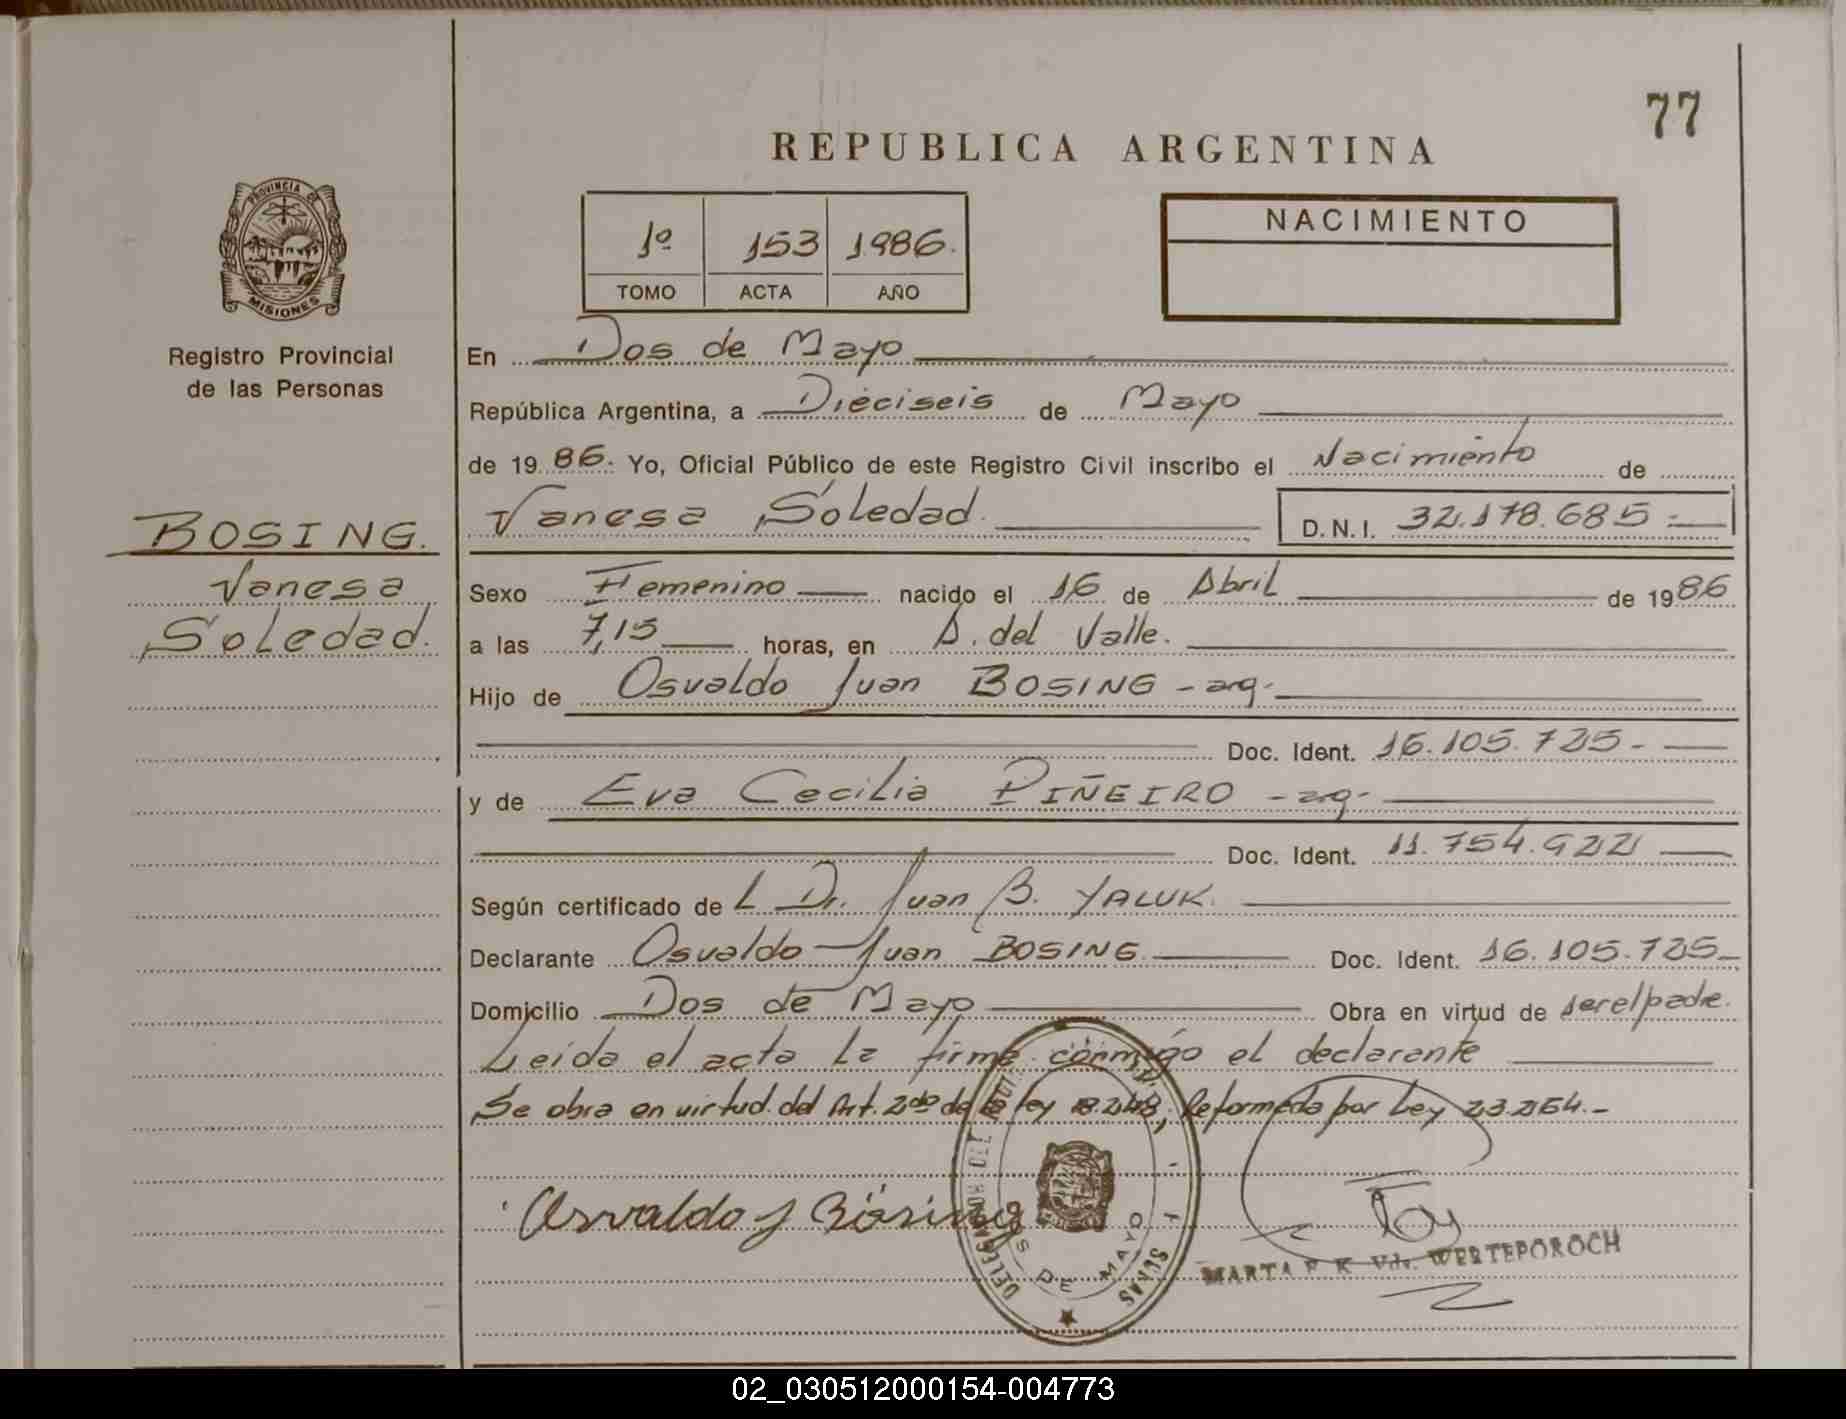 77
REPUBLICA ARGENTINA
PROVINCIA DE
MISIONES
Registro Provincial
de las Personas
1º 153 1986.
TOMO ACTA AÑO
NACIMIENTO
En Dos de Mayo
República Argentina, a Dieciseis de Mayo
de 1986. Yo, Oficial Público de este Registro Civil inscribo el Nacimiento de
Vanesa Soledad. D.N.I. 32.178.685.-
BOSING.
Vanesa
Soledad.
Sexo Femenino nacido el 16 de Abril de 1986
a las 7,15 horas, en A. del Valle.
Hijo de Osvaldo Juan BOSING - arg.
Doc. Ident. 16.105.725.-
y de Eva Cecilia PIÑEIRO - arg-
Doc. Ident. 11.754.922
Según certificado de L Dr. Juan B. YALUK.
Declarante Osvaldo Juan BOSING Doc. Ident. 16.105.725-
Domicilio Dos de Mayo Obra en virtud de ser el padre.
Leida el acta la firma conmigo el declarante
Se obra en virtud del Art. 2do de la ley 18.248, Reformada por Ley 23.264.-
Osvaldo J Bösing
DOS DE MAYO
MARTA F K Vda. WERTEPOROCH
02_030512000154-004773